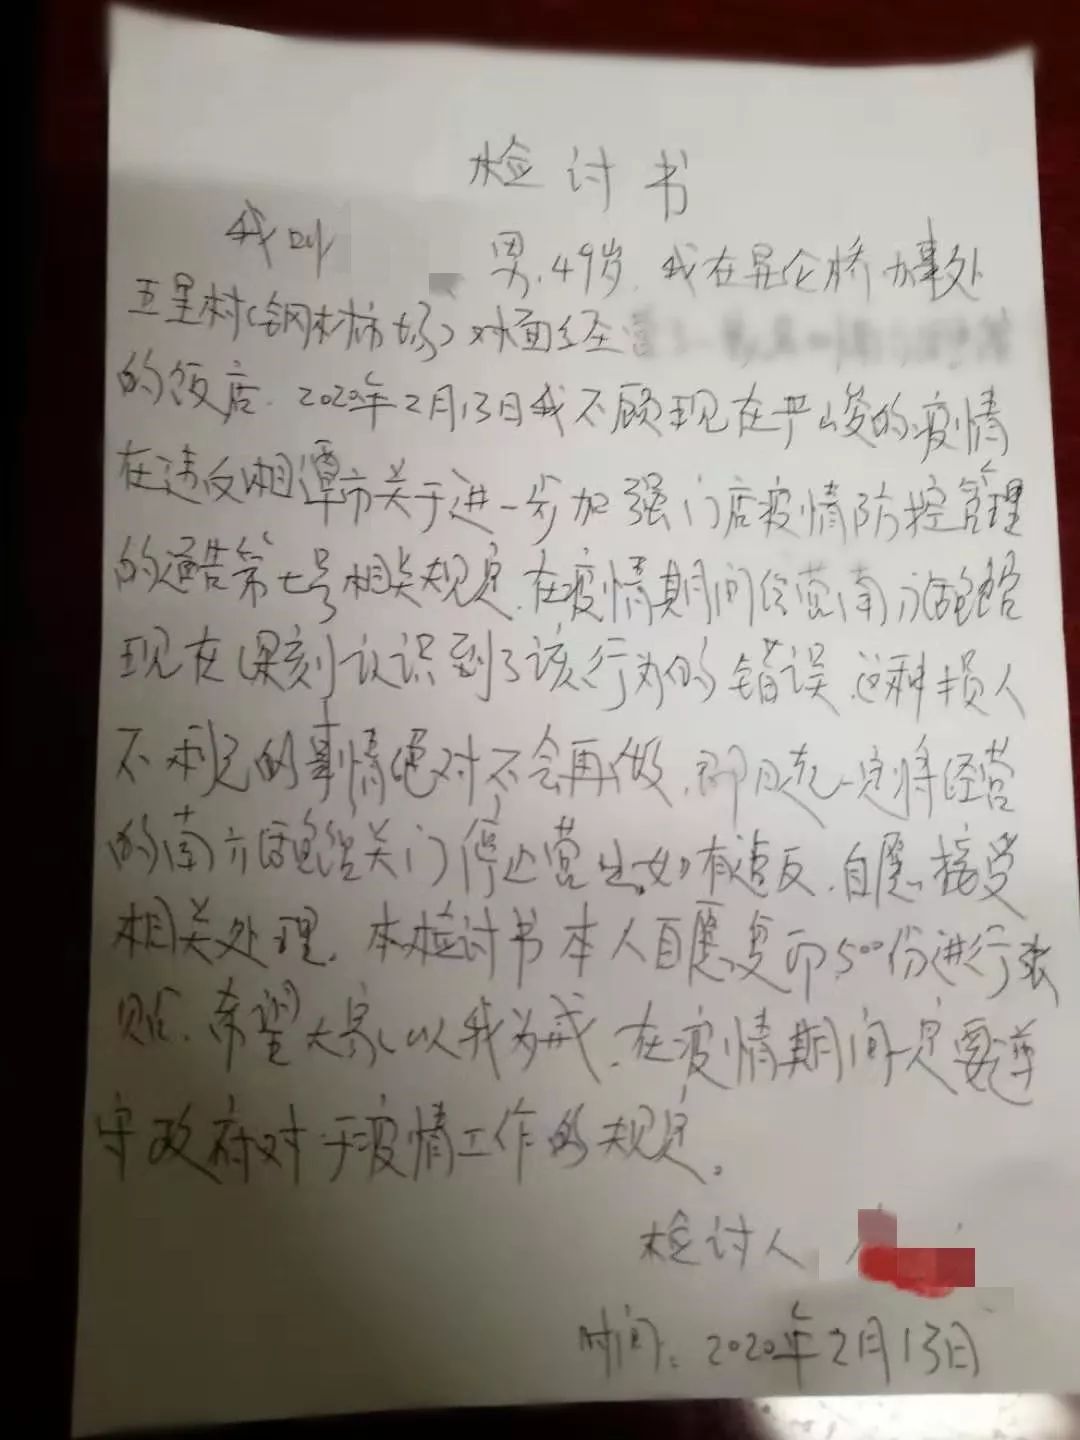 检讨书
我叫 男.49岁.我在昆仑桥办事处
五星村(钢材市场)对面经营
的饭店.2020年2月13日我不顾现在严峻的疫情
在违反湘潭市关于进一步加强门店疫情防控管理
的通告第七号相关规定.在疫情期间经营南方活鲍馆
现在深刻认识到了该行为的错误.这种损人
不利己的事情绝对不会再做.即日起一定将经营
的南方活鲍馆关门停止营业.如有违反.自愿接受
相关处理.本检讨书本人自愿复印500份进行张
贴.希望大家以我为戒.在疫情期间一定要遵
守政府对于疫情工作的规定。
检讨人
时间:2020年2月13日